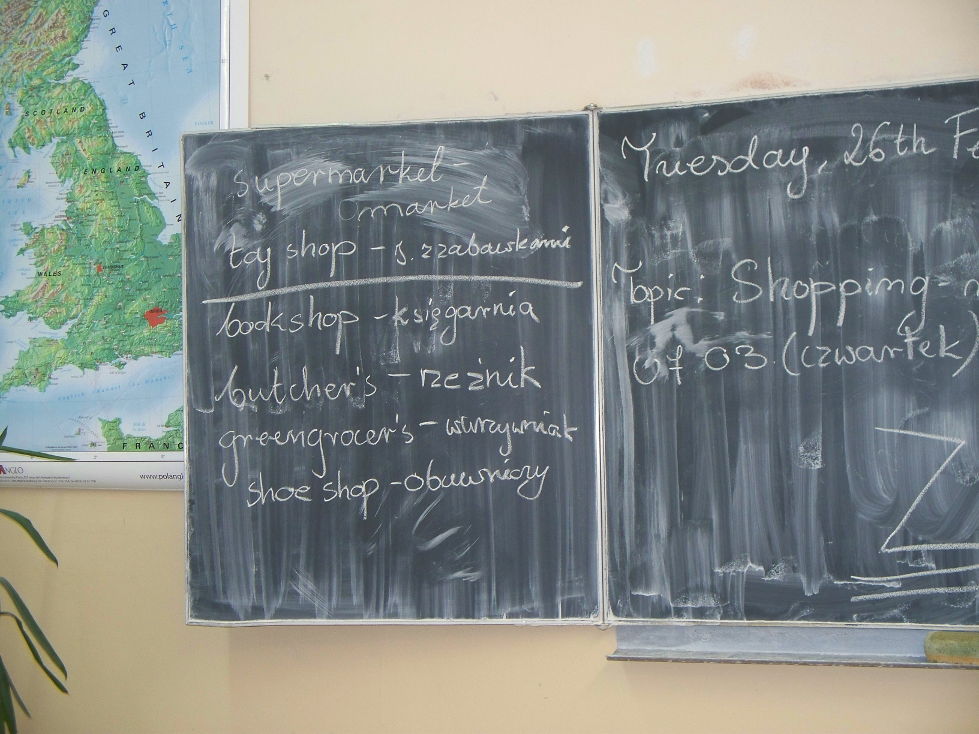 GREAT BRITAIN
SCOTLAND
ENGLAND
WALES
FRANC
ANGLO
www.polangl
supermarket
market
toy shop - s. z zabawkami
bookshop - księgarnia
butcher's - rzeźnik
greengrocer's - warzywniak
shoe shop - obuwniczy
Tuesday, 26th Fe
Topic: Shopping -
07 03 (czwartek)
Z